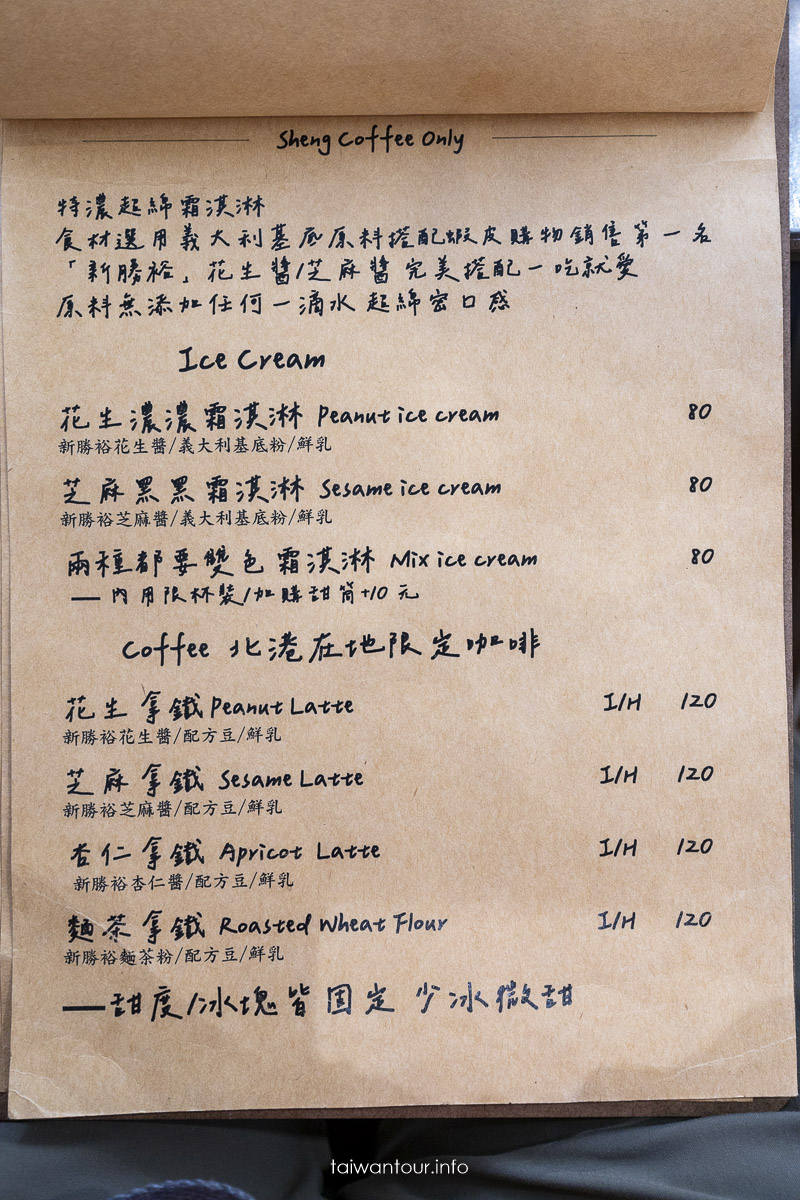 Sheng Coffee Only
特濃起綿霜淇淋
食材選用義大利基底原料搭配蝦皮購物銷售第一名
「新勝裕」花生醬/芝麻醬完美搭配一吃就愛
原料無添加任何一滴水 起綿密口感
Ice Cream
花生濃濃霜淇淋 Peanut ice cream 80
新勝裕花生醬/義大利基底粉/鮮乳
芝麻黑黑霜淇淋 Sesame ice cream 80
新勝裕芝麻醬/義大利基底粉/鮮乳
兩種都要雙色霜淇淋 Mix ice cream 80
— 內用限杯裝/加購甜筒+10元
Coffee 北港在地限定咖啡
花生拿鐵 Peanut Latte I/H 120
新勝裕花生醬/配方豆/鮮乳
芝麻拿鐵 Sesame Latte I/H 120
新勝裕芝麻醬/配方豆/鮮乳
杏仁拿鐵 Apricot Latte I/H 120
新勝裕杏仁醬/配方豆/鮮乳
麵茶拿鐵 Roasted Wheat Flour I/H 120
新勝裕麵茶粉/配方豆/鮮乳
—甜度/冰塊皆固定 少冰微甜
taiwantour.info